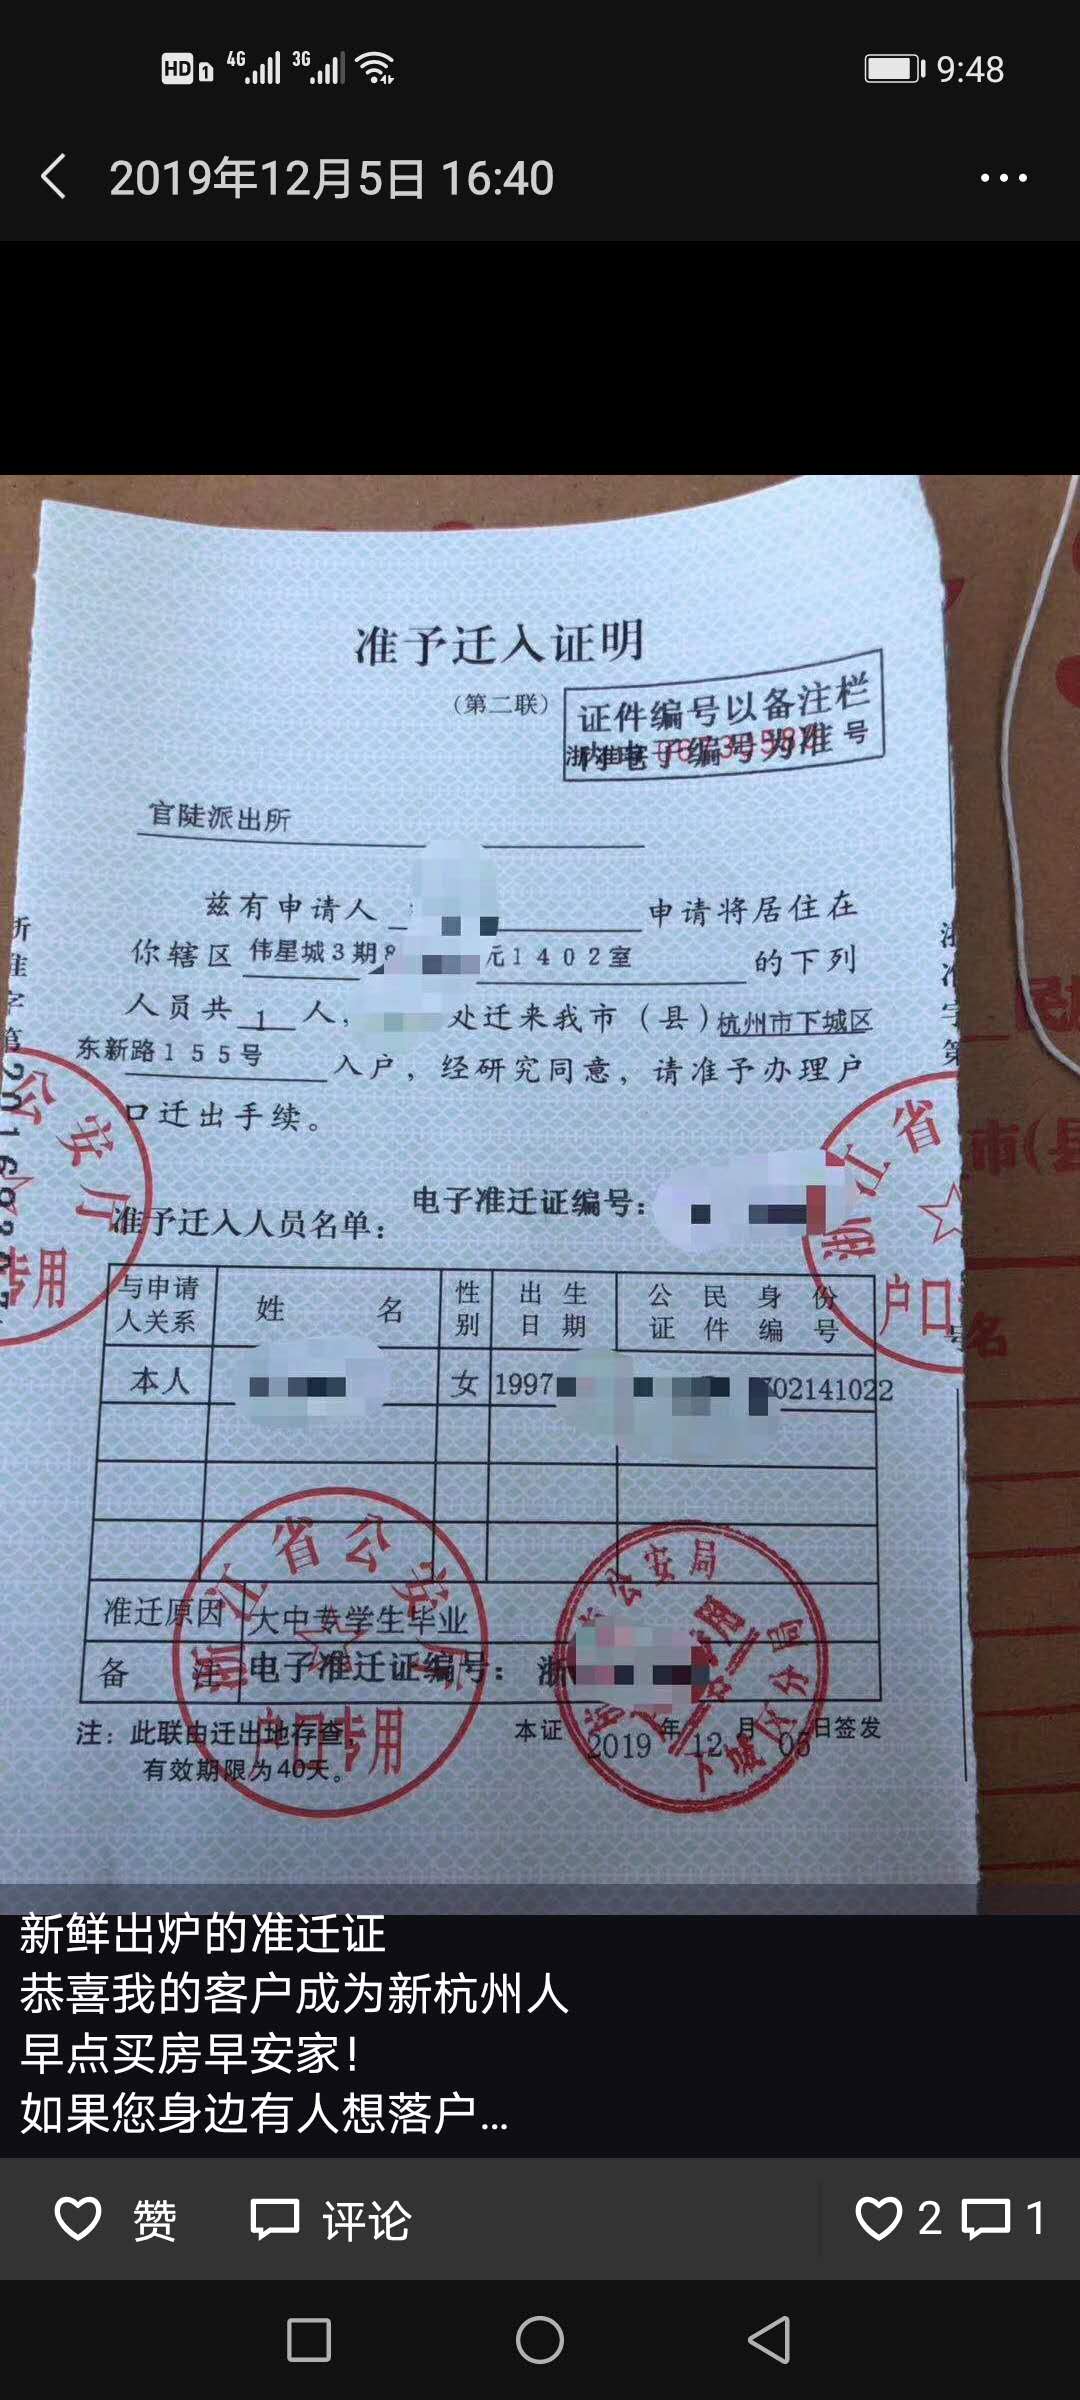 HD 1 4G 3G 9:48
2019年12月5日 16:40
准予迁入证明
（第二联）
证件编号以备注栏
内电子编号为准 号
官陡派出所
兹有申请人 申请将居住在
你辖区 伟星城3期8 元1402室 的下列
人员共 1 人， 处迁来我市（县）杭州市下城区
东新路155号 入户，经研究同意，请准予办理户
口迁出手续。
电子准迁证编号：
准予迁入人员名单：
与申请人关系 姓名 性别 出生日期 公民身份证件编号
本人 女 1997 702141022
准迁原因 大中专学生毕业
备注 电子准迁证编号： 浙
注：此联由迁出地存查，
有效期限为40天。
本证 2019 年 12 月 05 日签发
浙江省公安厅
户口专用
公安局
下城区分局
市(县
名
新鲜出炉的准迁证
恭喜我的客户成为新杭州人
早点买房早安家！
如果您身边有人想落户...
赞 评论 2 1